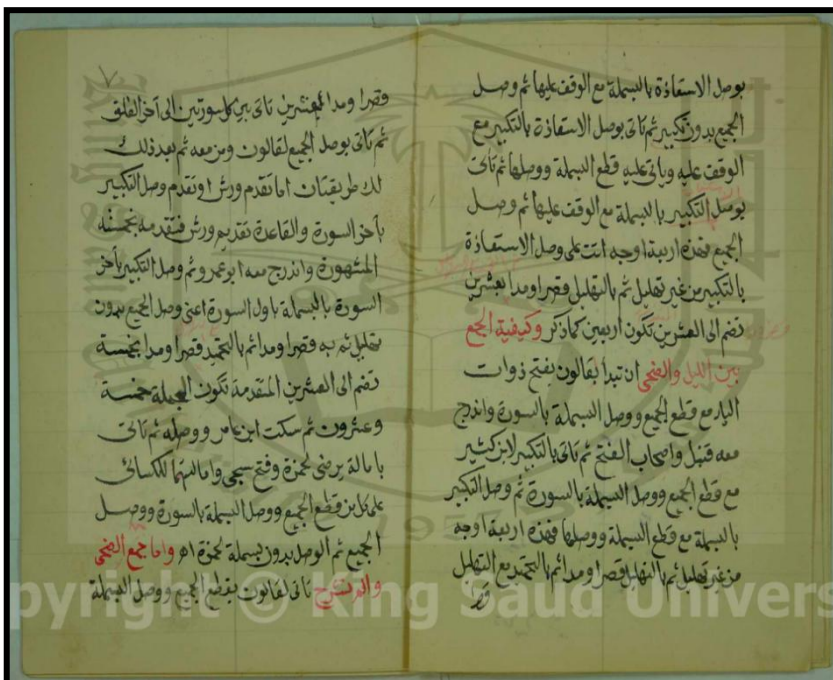 بوصل الاستعاذة بالبسملة مع الوقف عليها ثم وصل
الجميع بدون تكبير ثم تاتي بوصل الاستعاذة بالتكبير مع
الوقف عليه وياتي عليه قطع البسملة ووصلها ثم تاتي
بوصل التكبير بالبسملة مع الوقف عليها ثم وصل
الجميع فهذه اربعة اوجه اتت على وصل الاستعاذة
بالتكبير من غير تهليل ثم بالتهليل قصرا ومدا بعشرين
تضم الى العشرين تكون اربعين كما ذكر وكيفية الجمع
بين الليل والضحى ان تبدأ لقالون بفتح ذوات
الياء مع قطع الجميع ووصل البسملة بالسورة واندرج
معه قنبل واصحاب الفتح ثم تاتي بالتكبير لابن كثير
مع قطع الجميع ووصل البسملة بالسورة ثم وصل التكبير
بالبسملة مع قطع البسملة ووصلها فهذه اربعة اوجه
من غير تهليل ثم بالتهليل قصرا ومدا ثم بالتحميد مع التهليل
قصرا
٧
وقصرا ومدا بعشرين تاتي بين كل سورتين الى آخر الفلق
ثم تاتي بوصل الجميع لقالون ومن معه ثم بعد ذلك
لك طريقتان اما تقدم ورش او تقدم وصل التكبير
بآخر السورة والقاعدة تقديم ورش فتقدمه بخمسته
المشهورة واندرج معه ابو عمرو ثم وصل التكبير بآخر
السورة بالبسملة باول السورة اعني وصل الجميع بدون
تهليل ثم به قصرا ومدا ثم بالتحميد قصرا ومدا بخمسة
تضم الى العشرين المتقدمة تكون الجملة خمسة
وعشرون ثم سكت ابن عامر ووصله ثم تاتي
بامالة يرضى لحمزة وفتح سجى وامالتهما للكسائي
على كل من قطع الجميع ووصل البسملة بالسورة ووصل
الجميع ثم الوصل بدون بسملة لحمزة اه واما جمع الضحى
والم نشرح تاتي لقالون بقطع الجميع ووصل البسملة
pyright © King Saud Univers
1957